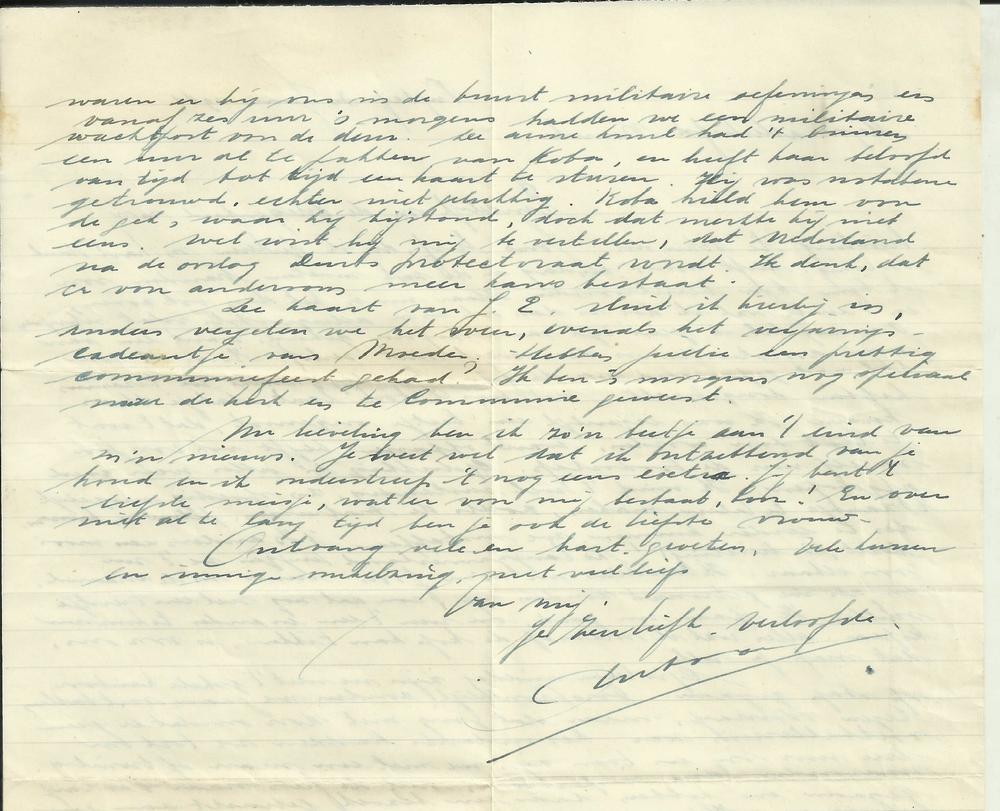 waren er bij ons in de buurt militaire oefeningen en
vanaf zes uur 's morgens hadden we een militaire
wachtpost voor de deur. De arme knul had 't binnen
een uur al te pakken van Koba, en heeft haar beloofd
van tijd tot tijd een kaart te sturen. Hij was notabene
getrouwd, echter niet gelukkig. Koba hield hem voor
de gek, waar hij bijstond, doch dat merkte hij niet
eens. Wel wist hij mij te vertellen, dat Nederland
na de oorlog Duits protectoraat wordt. Ik denk, dat
er voor andersom meer kans bestaat.
De kaart van J. E. sluit ik hierbij in,
anders vergeten we het weer, evenals het verjaarings-
cadeautje van Moeder. Hebben jullie een prettig
communiefeest gehad? Ik ben 's morgens nog speciaal
naar de kerk en te Communie geweest.
Nu lieveling ben ik zo'n beetje aan 't eind van
m'n nieuws. Je weet wel dat ik ontzettend van je
houd en ik onderstreep 't nog eens extra. Jij bent 't
liefste meisje, wat er voor mij bestaat, hoor! En over
niet al te lang tijd ben je ook de liefste vrouw.
Ontvang vele en hart. groeten, vele kussen
en innige omhelzing met veel liefs
van mij
Je zeer liefh. verloofde.
Anton